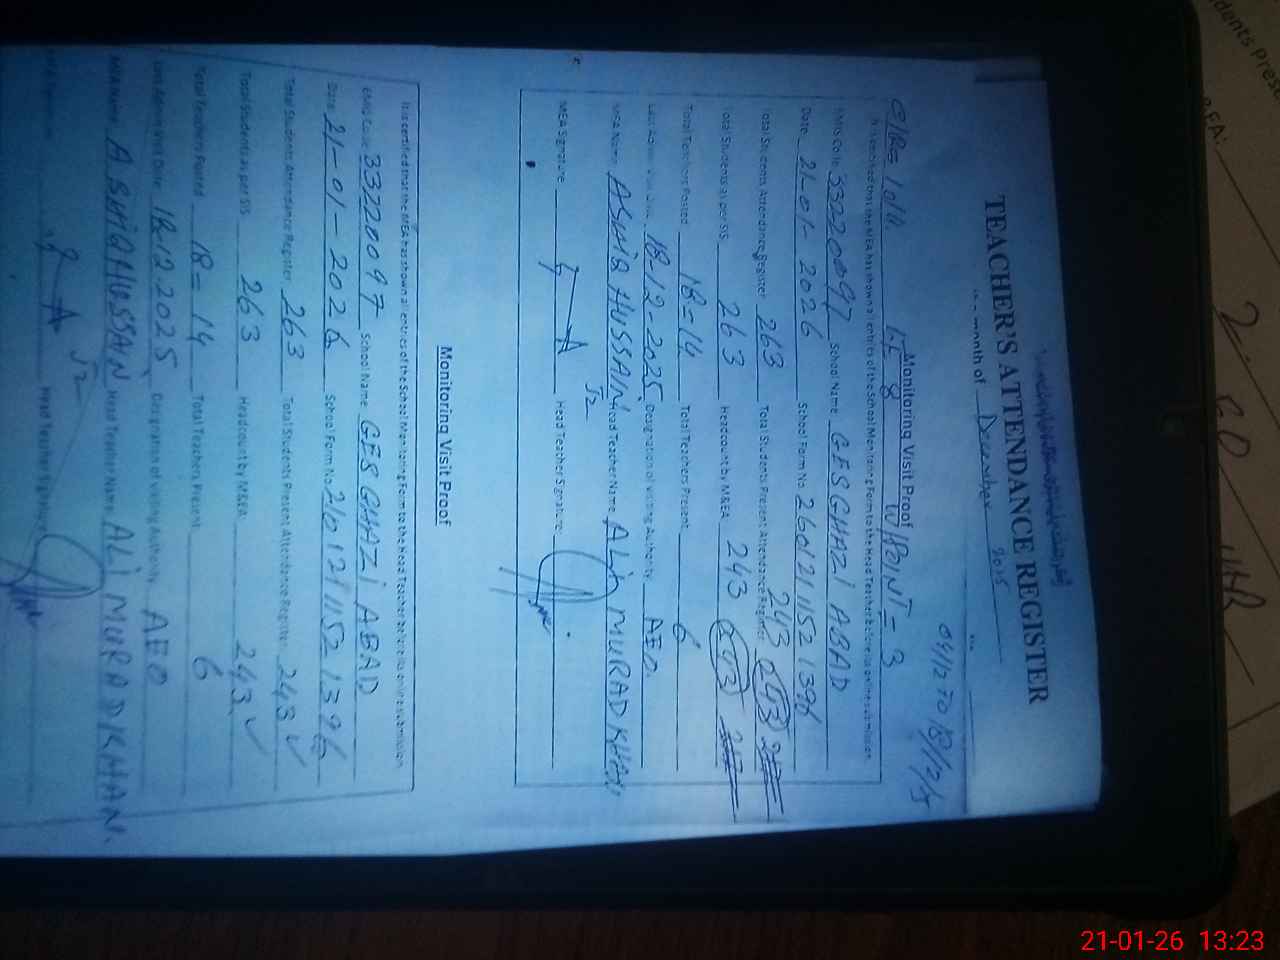 TEACHER'S ATTENDANCE REGISTER
month of December 2025
C/R= 10/11
Monitoring Visit Proof
It is certified that the MEA has shown all entries of the School Monitoring Form to the Head Teacher before its online submission.
EMIS Code 33220097 School Name GES GHAZI ABAD
Date 21-01-2026 School Form No. 260121152139
Total Students Attendance Register 263 Total Students Present Attendance Register 243
Total Students as per SIS 263 Headcount by M&EA 243
Total Teachers Posted 18=14 Total Teachers Present 6
Last Admin Visit Date 18-12-2025 Designation of Visiting Authority AEO
MEA Name ASHIQ HUSSAIN Head Teacher Name ALI MURAD KHAN
MEA Signature Head Teacher Signature
Monitoring Visit Proof
It is certified that the MEA has shown all entries of the School Monitoring Form to the Head Teacher before its online submission.
EMIS Code 33220097 School Name GES GHAZI ABAD
Date 21-01-2026 School Form No.
Total Students Attendance Register 263 Total Students Present Attendance Register 243
Total Students as per SIS 263 Headcount by M&EA 243
Total Teachers Posted 18=14 Total Teachers Present 6
Last Admin Visit Date 18-12-2025 Designation of Visiting Authority AEO
MEA Name ASHIQ HUSSAIN Head Teacher Name ALI MURAD KHAN
Head Teacher Signature
21-01-26 13:23